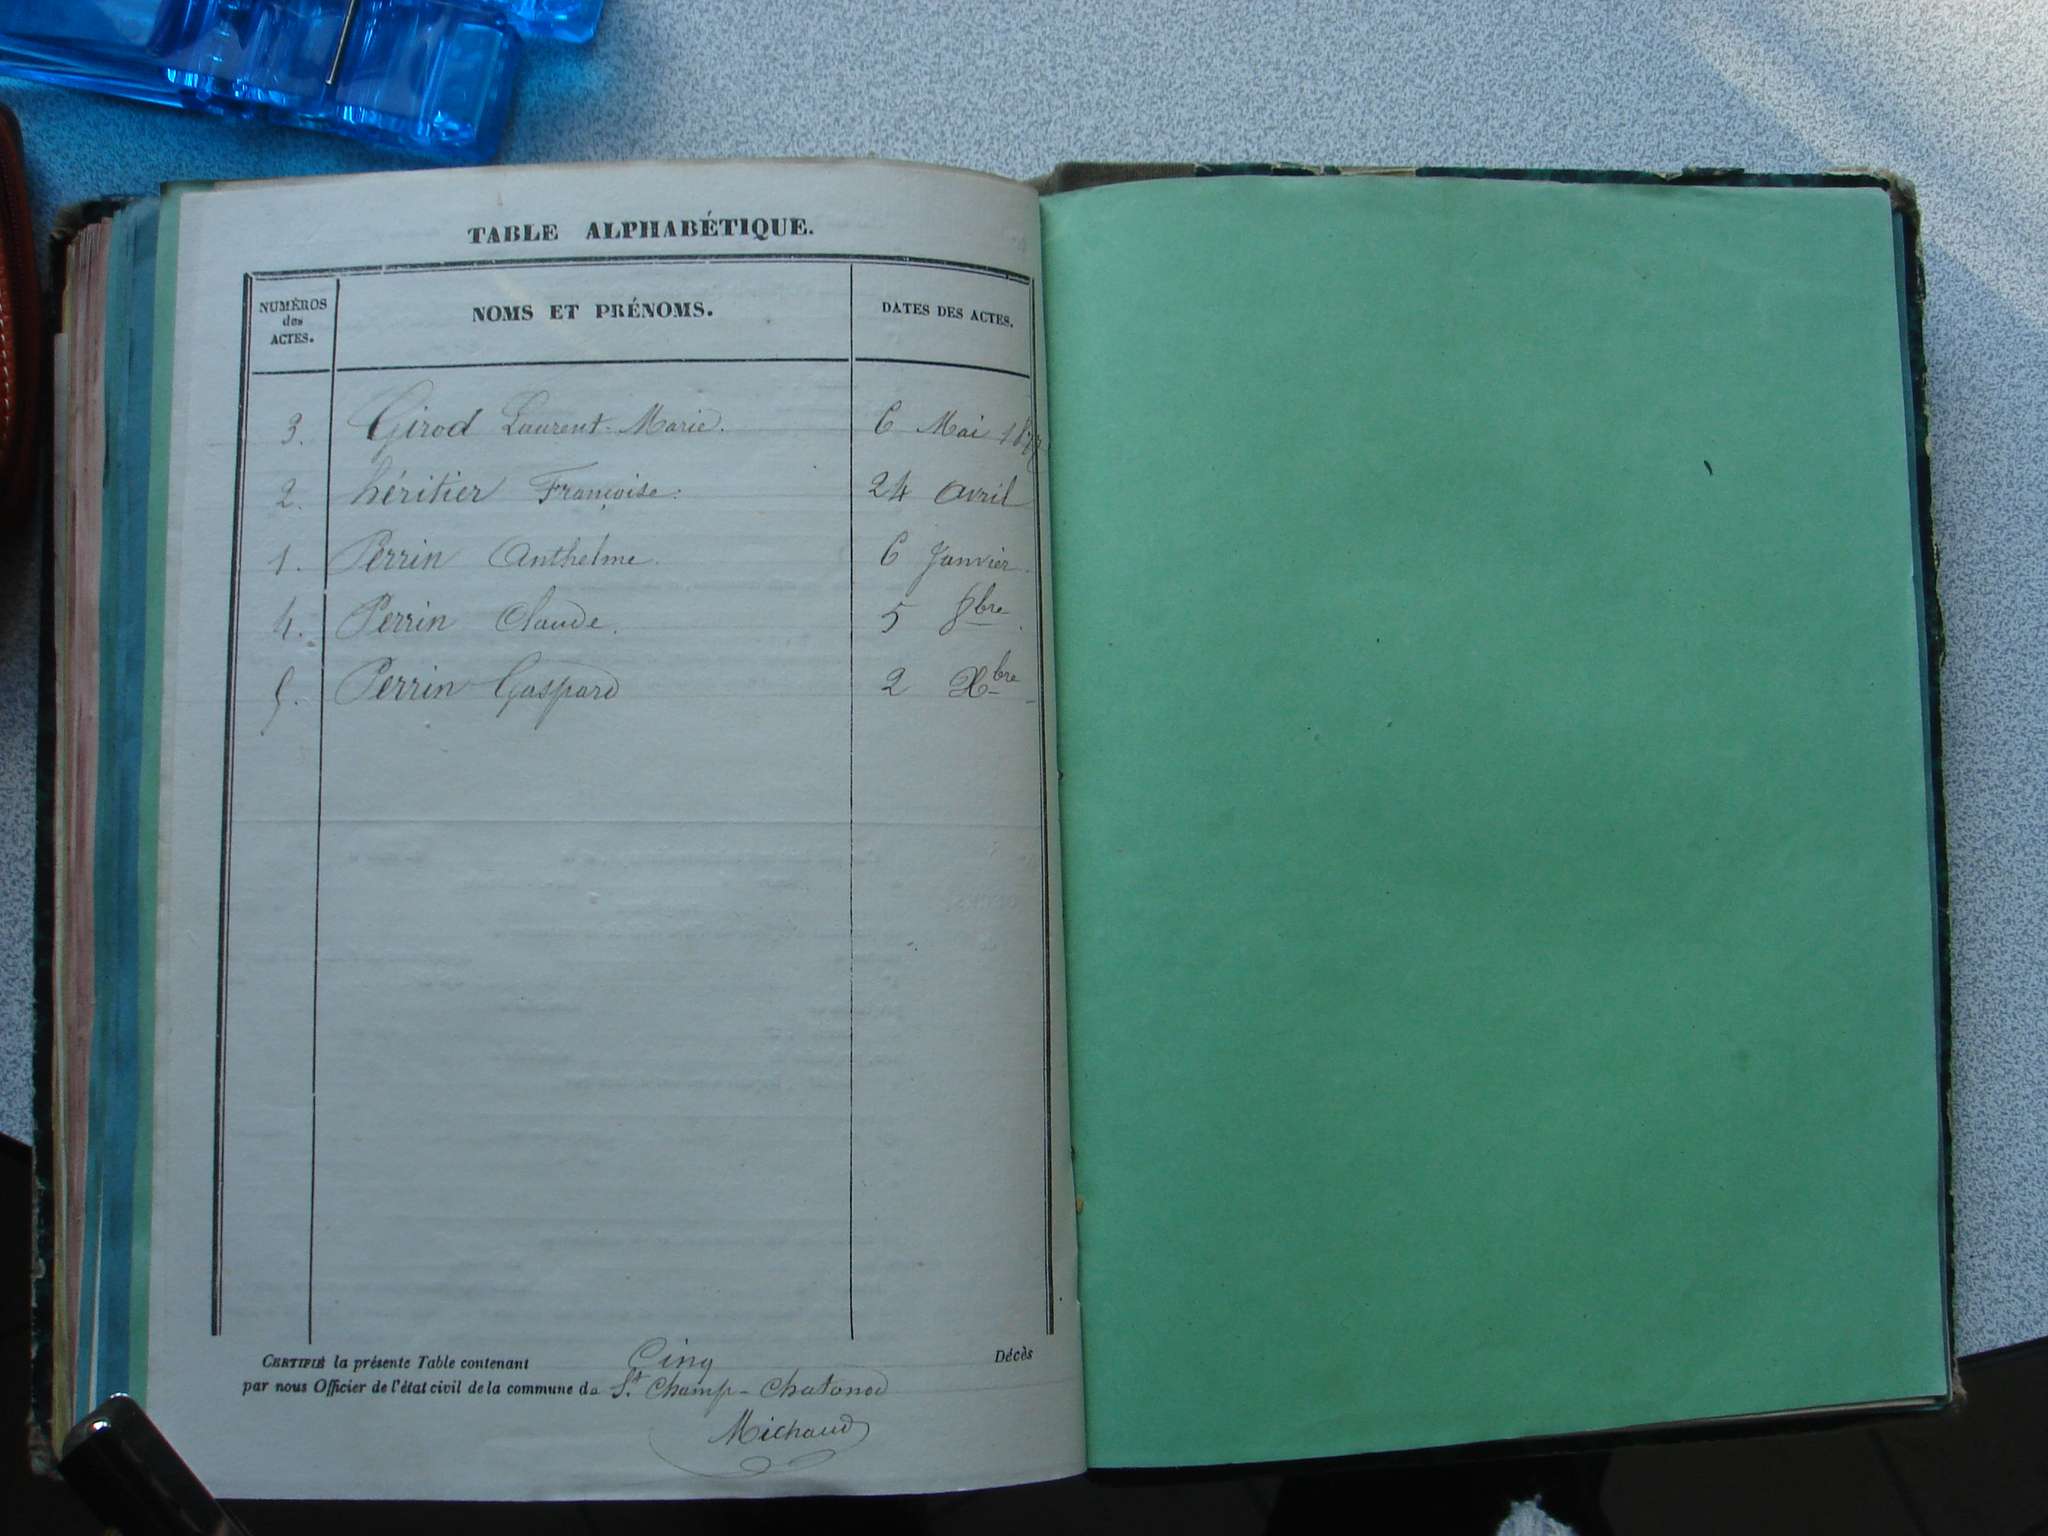 TABLE ALPHABÉTIQUE.
NUMÉROS
des
ACTES.
NOMS ET PRÉNOMS.
DATES DES ACTES.
3. Girod Laurent-Marie. 6 Mai
2. héritier Françoise. 24 avril
1. Perrin Anthelme. 6 Janvier.
4. Perrin Claude. 5 bre
5. Perrin Gaspard 2 Xbre
CERTIFIÉ la présente Table contenant Cinq Décès
par nous Officier de l'état civil de la commune de St. Champ-Chatonod
Michaud